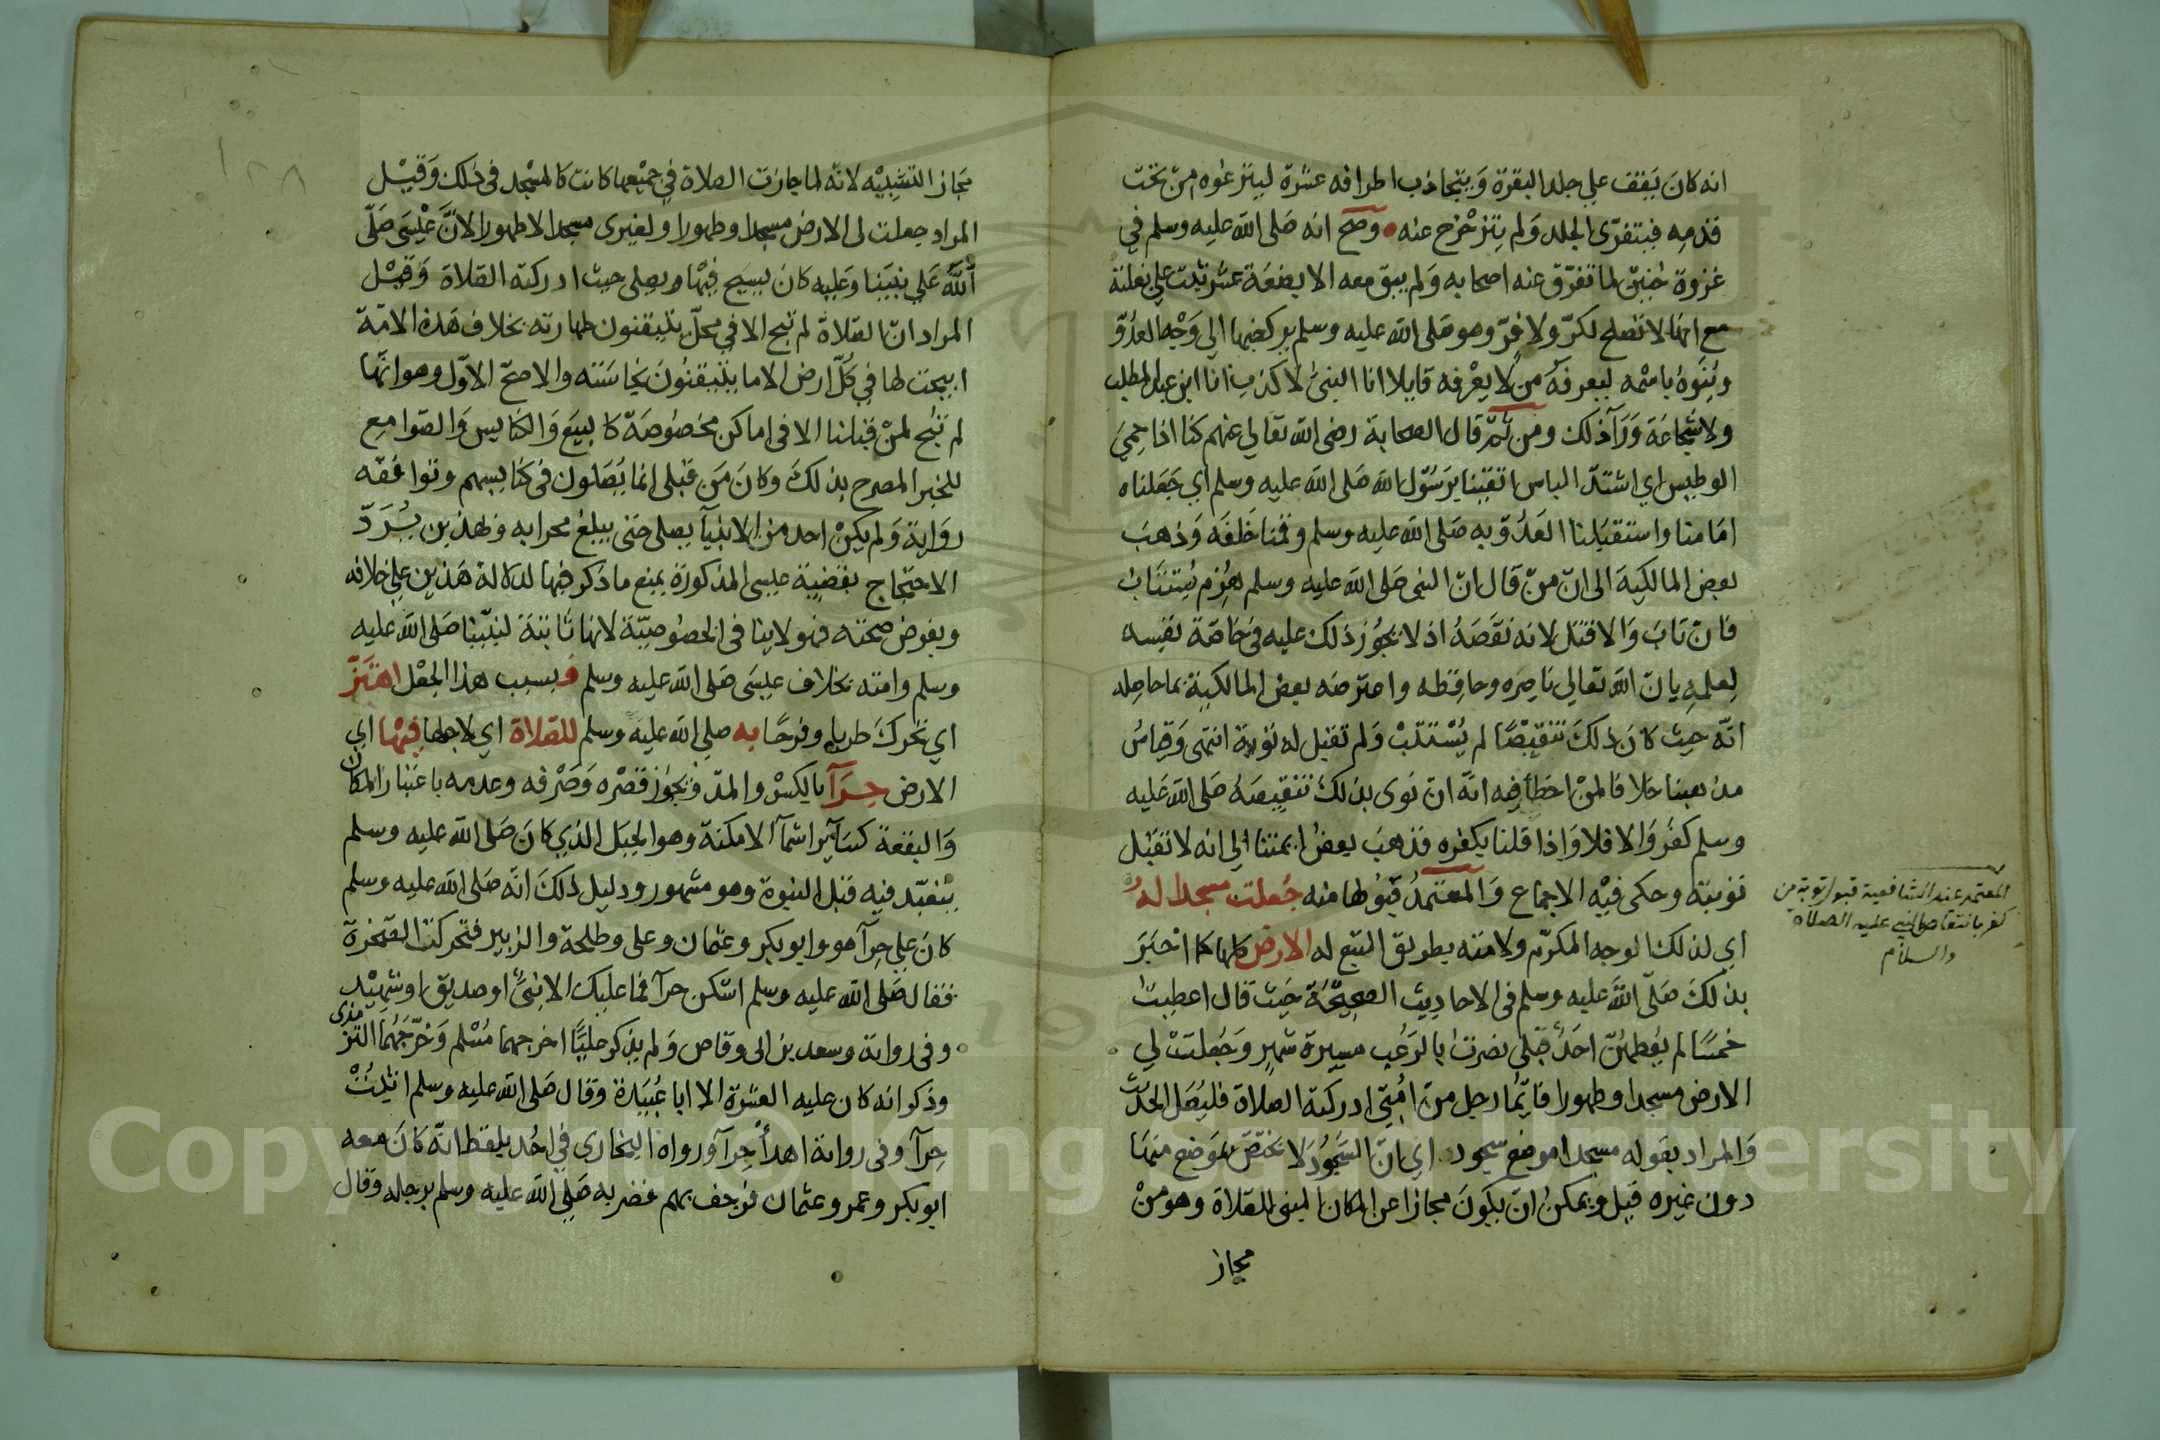 انه كان يقف على جلد البقرة ويتجاذب اطرافه عشرة لينزعوه من تحت
قدمه فيتفرّى الجلد ولم يتزحزح عنه وصح انه صلى الله عليه وسلم في
غزوة حنين لما تفرّق عنه اصحابه ولم يبق معه الا بضعة عشر ثبت على بغلته
مع انها لا تصلح لكرّ ولا فرّ وهو صلى الله عليه وسلم يركضها الى وجه العدوّ
وينوه باسمه ليعرفه من لا يعرفه قايلا انا النبي لا كذب انا ابن عبد المطلب
ولا شجاعة ورآ ذلك ومن ثمّ قال الصحابة رضى الله تعالى عنهم كنا اذا حمى
الوطيس اي اشتدّ الباس اتقينا برسول الله صلى الله عليه وسلم اي جعلناه
امامنا واستقبلنا العدوّ به صلى الله عليه وسلم وقمنا خلفه وذهب
بعض المالكية الى انّ من قال انّ النبى صلى الله عليه وسلم هزم يستتاب
فان تاب والا قتل لانه نقصه اذ لا يجوز ذلك عليه في خاصّة نفسه
لعلمه بانّ الله تعالي ناصره وحافظه واعترضه بعض المالكية بما حاصله
انّه حيث كان ذلك تنقيصًا لم يستتب ولم تقبل له توبة انتهى وقياس
مذهبنا خلافا لمن اخطأ فيه انّه ان نوى بذلك تنقيصه صلى الله عليه
وسلم كفر والا فلا واذا قلنا بكفره فذهب بعض ايمتنا الى انه لا تقبل
توبته وحكى فيه الاجماع والمعتمد قبولها منه جعلت مسجدا له
اي لذلك الوجه المكرّم ولامته بطريق التبع له الارض كلها كما اخبر
بذلك صلّى الله عليه وسلم فى الاحاديث الصحيحة حيث قال اعطيت
خمسًا لم يعطهنّ احد قبلى نصرت بالرعب مسيرة شهر وجعلت لي
الارض مسجدا وطهورا فايّما رجل من امّتي ادركته الصلاة فليصل الحديث
والمراد بقوله مسجدا موضع سجود اي انّ السجود لا يختصّ بموضع منها
دون غيره قيل ويمكن ان يكون مجازا عن المكان المبنى للصلاة وهو من
مجاز
المعتمد عند الشافعية قبول توبة من
كفر بانتقاص النبي عليه الصلاة
والسلام
مجاز التشبيه لانه لما جازت الصلاة في جميعها كانت كالمسجد فى ذلك وقيل
المراد جعلت لى الارض مسجدا وطهورا ولغيرى مسجدا لا طهورا لانّ عيسى صلّى
الله على نبينا وعليه كان يسيح فيها ويصلى حيث ادركته الصلاة وقيل
المراد انّ الصلاة لم تبح الا في محلّ يتيقنون طهارته بخلاف هذه الامّة
ابيحت لها في كلّ ارض الا ما يتيقنون نجاسته والاصحّ الاوّل وهو انّها
لم تبح لمن قبلنا الا فى اماكن مخصوصة كالبيع والكنايس والصوامع
للخبر المصرح بذلك وكان من قبلى انما يصلون فى كنايسهم وتوافقه
رواية ولم يكن احد من الانبيآ يصلى حتى يبلغ محرابه وبهذين يردّ
الاحتجاج بقضية عيسى المذكورة بمنع ما ذكر فيها لدلالة هذين على خلافه
وبفرض صحته فهو لا ينافى الخصوصيّة لانها ثابتة لنبيّنا صلى الله عليه
وسلم وامته بخلاف عيسى صلى الله عليه وسلم وبسبب هذا الجعل اهتزّ
اي تحرك طربا وفرحًا به صلى الله عليه وسلم للصلاة اي لاجلها فيها اي
الارض حرآ بالكسر والمدّ ويجوز قصره وصرفه وعدمه باعتبار المكان
والبقعة كسآير اسمآ الامكنة وهو الجبل الذي كان صلى الله عليه وسلم
يتعبّد فيه قبل النبوة وهو مشهور ودليل ذلك انّه صلى الله عليه وسلم
كان على حرآ هو وابو بكر وعثمان وعلى وطلحة والزبير فتحركت الصخرة
فقال صلى الله عليه وسلم اسكن حرآ فما عليك الا نبىّ او صديق او شهيد
وفى رواية وسعد بن ابى وقاص ولم يذكر عليًّا اخرجهما مسلم وخرّجهما الترمذى
وذكر انه كان عليه العشرة الا ابا عبيدة وقال صلى الله عليه وسلم اثبت
حرآ وفى رواية اهدأ حرآ ورواه البخاري في احد بلفظ انّه كان معه
ابو بكر وعمر وعثمان فرجف بهم فضربه صلى الله عليه وسلم برجله وقال
Copyright © King Saud University